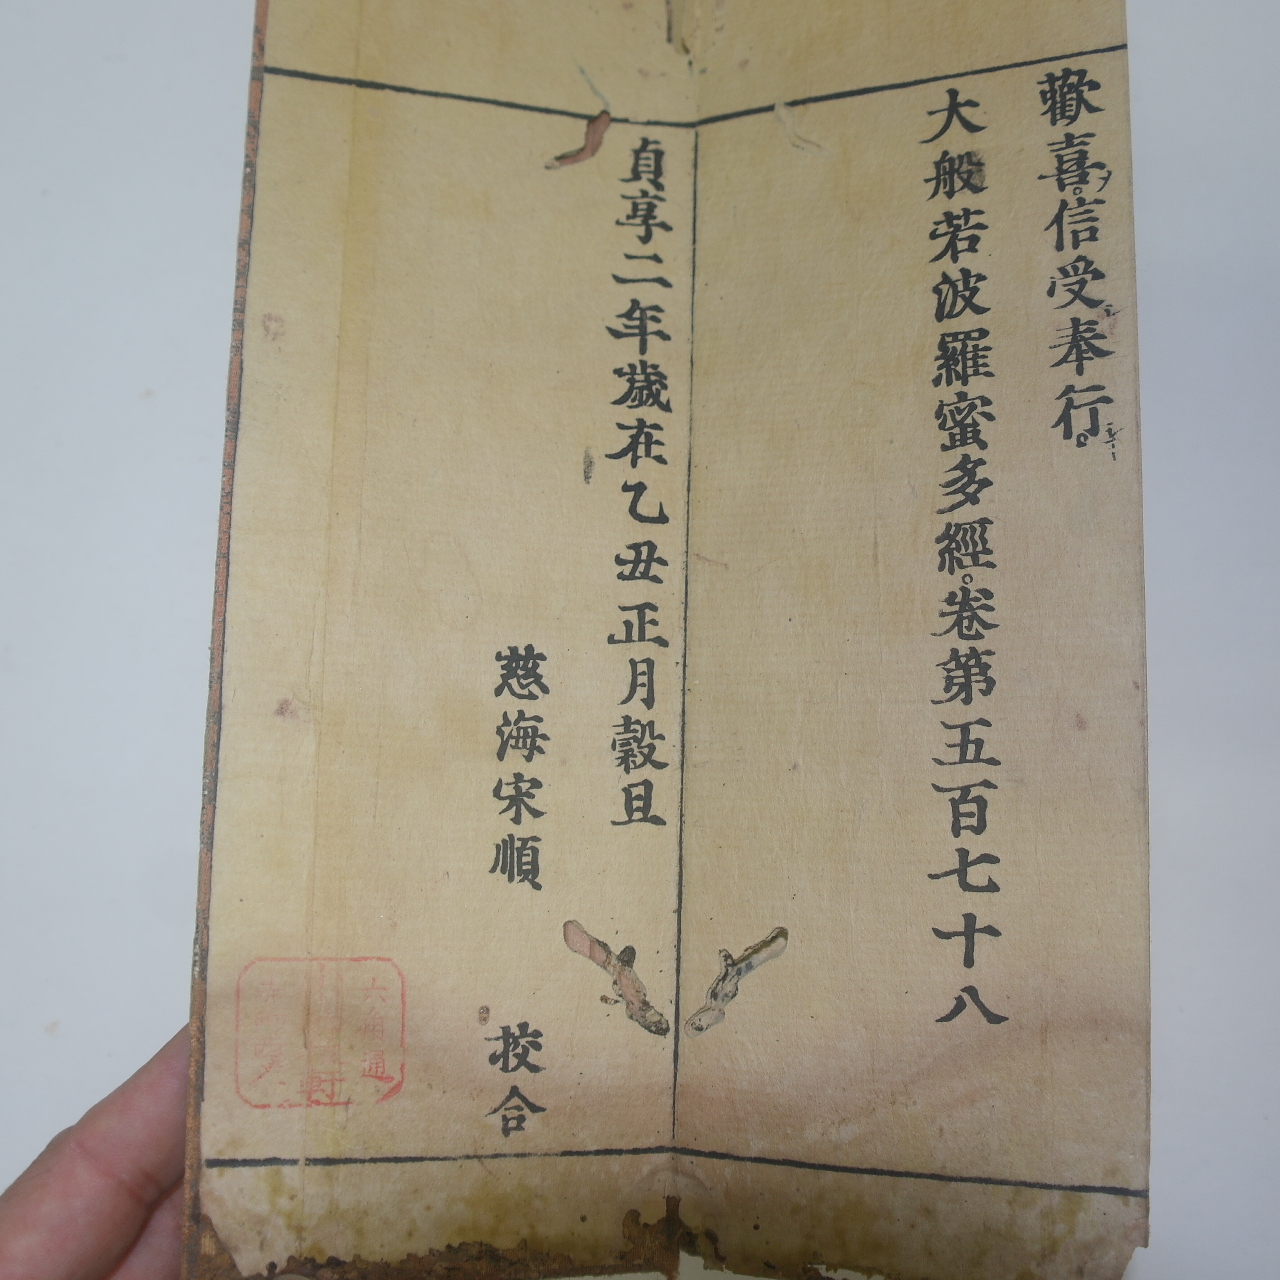 歡喜。信受奉行。
大般若波羅蜜多經。卷第五百七十八
貞享二年歲在乙丑正月穀旦
慈海宋順 挍合
六角通